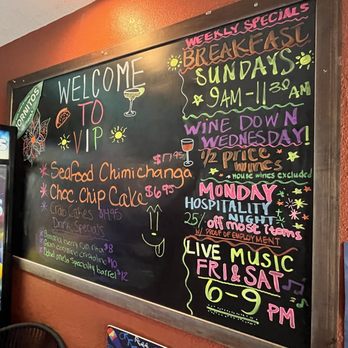 WELCOME
TO
VIP
Seafood Chimichanga $17.95
Choc. Chip Cake $6.95
Crab Cakes $14.95
Drink Specials
WEEKLY SPECIALS
BREAKFAST
SUNDAYS
9AM-11:30AM
WINE DOWN
WEDNESDAY!
1/2 price
wines
house wines excluded
MONDAY
HOSPITALITY
NIGHT
25% off most items
W/ PROOF OF EMPLOYMENT
LIVE MUSIC
FRI & SAT
6-9
PM